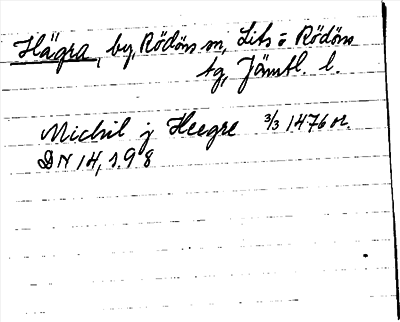 Hägra, by, Rödöns sn, Lits o Rödöns
tg, Jämtl. l.
Michil j Heegre 3/3 1476 or.
DN 14, s. 98